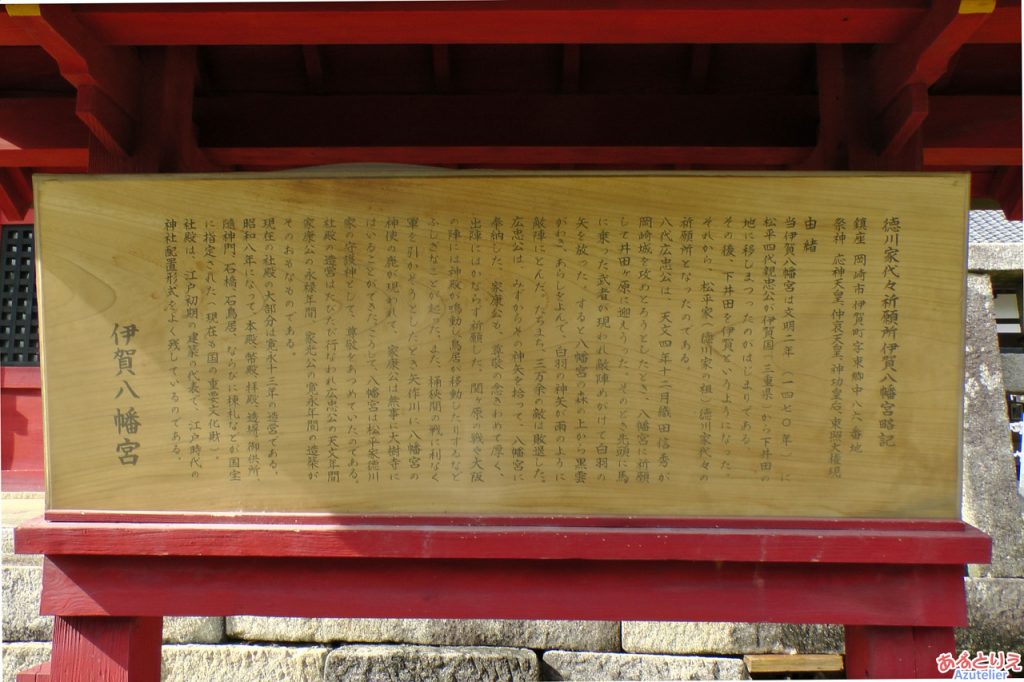 徳川家代々祈願所伊賀八幡宮略記
鎮座 岡崎市伊賀町字東郷中八六番地
祭神 応神天皇、仲哀天皇、神功皇后、東照大権現
由緒
当伊賀八幡宮は文明二年(一四七〇年)に
松平四代親忠公が伊賀国(三重県)から下井田の
地に移しまつったのがはじまりである。
その後、下井田を伊賀というようになった。
それから、松平家(徳川家の祖)徳川家代々の
祈願所となったのである。
八代広忠公は、天文四年十二月織田信秀が
岡崎城を攻めとろうとしたとき、八幡宮に祈願
して井田ヶ原に迎えうった。そのとき先頭に馬
に乗った武者が現われ敵陣めがけて白羽の
矢を放った。すると八幡宮の森の上から黒雲
がわき、あらしをよんで、白羽の神矢が雨のように
敵陣にとんだ。たちまち、三万余の敵は敗退した。
広忠公は、みずからその神矢を拾って、八幡宮に
奉納した。家康公も、尊敬の念きわめて厚く、
出陣にはかならず祈願した。関ヶ原の戦や大阪
の陣には神殿が鳴動し鳥居が移動したりするなど
ふしぎなことが起った。また、桶狭間の戦に利なく
軍を引かそうとしたとき矢作川に八幡宮の
神使の鹿が現われて、家康公は無事に大樹寺に
はいることができた。こうして、八幡宮は松平家徳川
家の守護神として、尊敬をあつめていたのである。
社殿の造営はたびたび行なわれ広忠公の天文年間
家康公の永禄年間、家光公の寛永年間の造築が
そのおもなものである。
現在の社殿の大部分は寛永十三年の造営である。
昭和八年になって、本殿、幣殿、拝殿、透塀、御供所、
随神門、石橋、石鳥居、ならびに棟札などが国宝
に指定された(現在も国の重要文化財)。
社殿は、江戸初期の建築の代表で、江戸時代の
神社配置形式をよく残しているのである。
伊賀八幡宮
あるとりえ
Azutelier